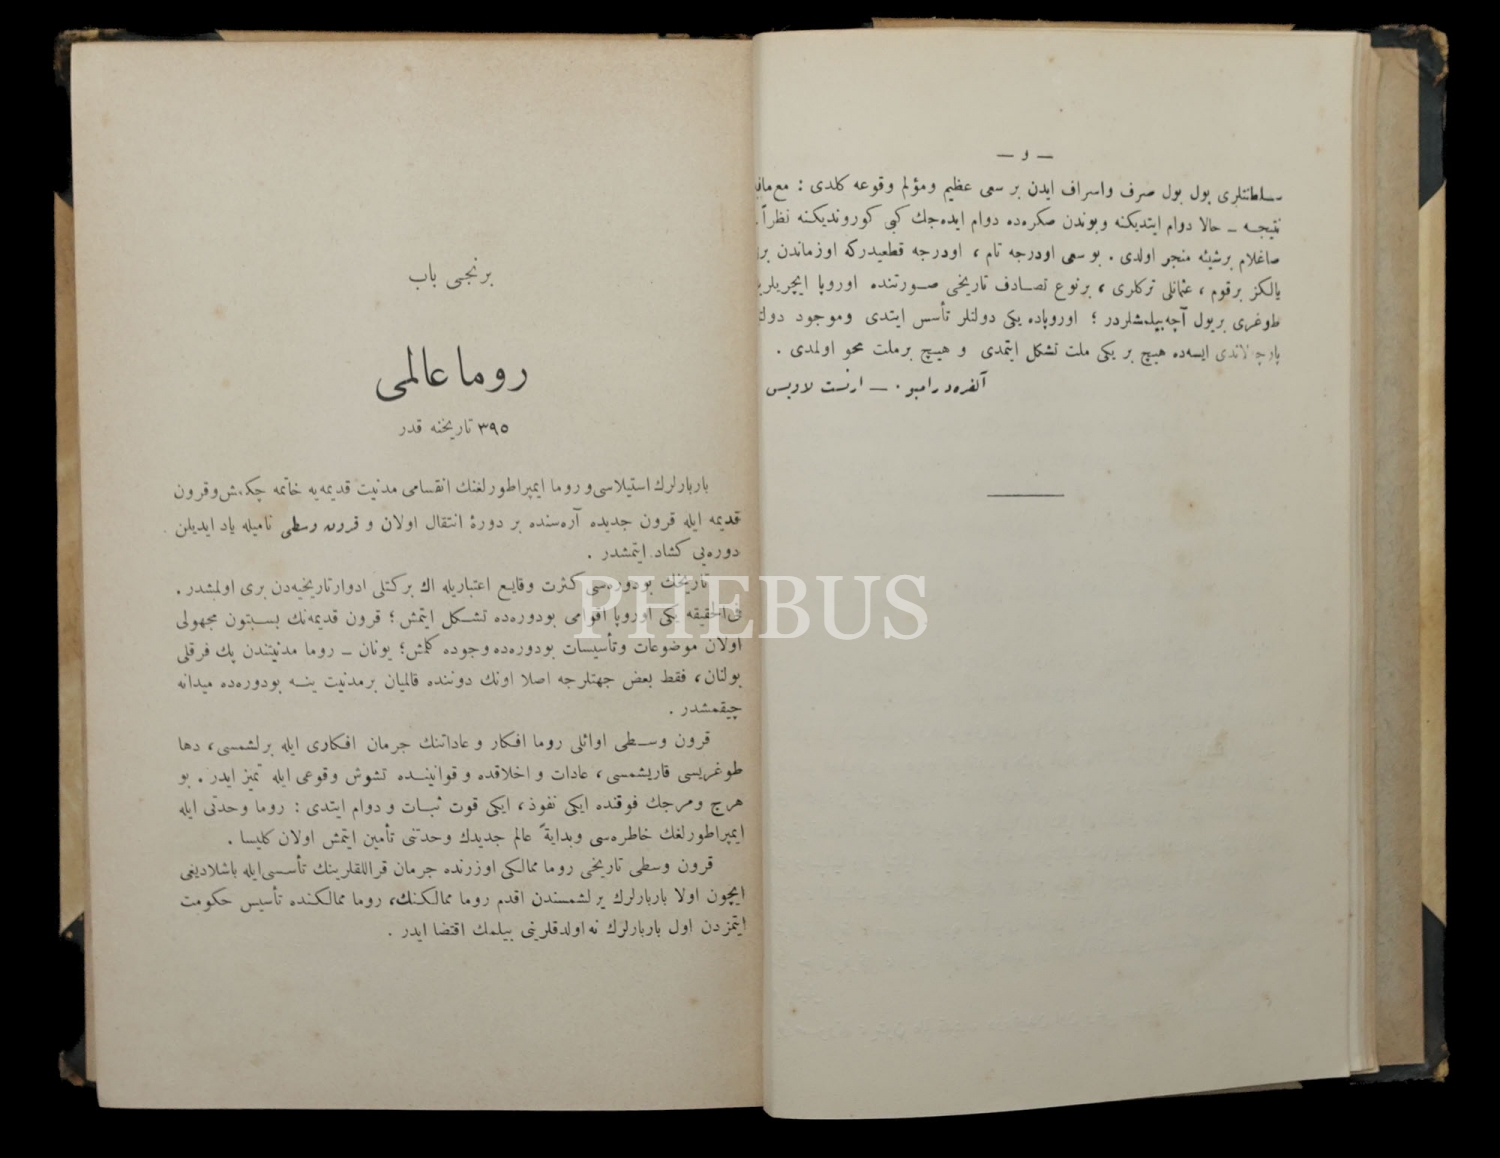 — و —
سلطنتلری بول بول صرف واسراف ایدن بر سعی عظیم ومؤلم وقوعه کلدی : مع مافیه
نتیجه – حالا دوام ایتدیکنه وبوندن صکره‌ده دوام ایده‌جك کبی کوروندیکنه نظراً
صاغلام برشیئه منجر اولدی . بو سعی اودرجه تام ، اودرجه قطعیدرکه اوزماندن بری
یالکز برقوم ، عثمانلی ترکلری ، برنوع تصادف تاریخی صورتنده اوروپا ایچریلرینه
طوغری بریول آچه‌بیلمشلردر ؛ اوروپاده یکی دولتلر تأسس ایتدی وموجود دولتلر
پارچه‌لاندی ایسه‌ده هیچ بر یکی ملت تشکل ایتمدی و هیچ برملت محو اولمدی .
آلفره‌د رامبو . — ارنست لاویس
برنجی باب
روما عالمی
٣٩٥ تاریخنه قدر
باربارلرك استیلاسی و روما ایمپراطورلغنك انقسامی مدنیت قدیمه‌یه خاتمه چکمش وقرون
قدیمه ایله قرون جدیده آره‌سنده بر دورۀ انتقال اولان و قرون وسطی نامیله یاد ایدیلن
دوره‌یی کشاد ایتمشدر .
تاریخك بودوره‌سی کثرت وقایع اعتباریله اك برکتلی ادوار تاریخیه‌دن بری اولمشدر .
فی‌الحقیقه یکی اوروپا اقوامی بودوره‌ده تشکل ایتمش ؛ قرون قدیمه‌نك بسبتون مجهولی
اولان موضوعات وتأسیسات بودوره‌ده وجوده کلمش ؛ یونان – روما مدنیتندن پك فرقلی
بولنان ، فقط بعض جهتلرجه اصلا اونك دوننده قالمیان برمدنیت ینه بودوره‌ده میدانه
چیقمشدر .
قرون وسطی اوائلی روما افکار و عاداتنك جرمان افکاری ایله برلشمسی ، دها
طوغریسی قاریشمسی ، عادات و اخلاقده و قوانینده تشوش وقوعی ایله تمیز ایدر . بو
هرج ومرجك فوقنده ایکی نفوذ ، ایکی قوت ثبات و دوام ایتدی : روما وحدتی ایله
ایمپراطورلغك خاطره‌سی وبدایةً عالم جدیدك وحدتی تأمین ایتمش اولان کلیسا .
قرون وسطی تاریخی روما ممالکی اوزرنده جرمان قراللقلرینك تأسسی ایله باشلادیغی
ایچون اولا باربارلرك یرلشمسندن اقدم روما ممالکنك ، روما ممالکنده تأسیس حکومت
ایتمزدن اول باربارلرك نه اولدقلرینی بیلمك اقتضا ایدر .
PHEBUS